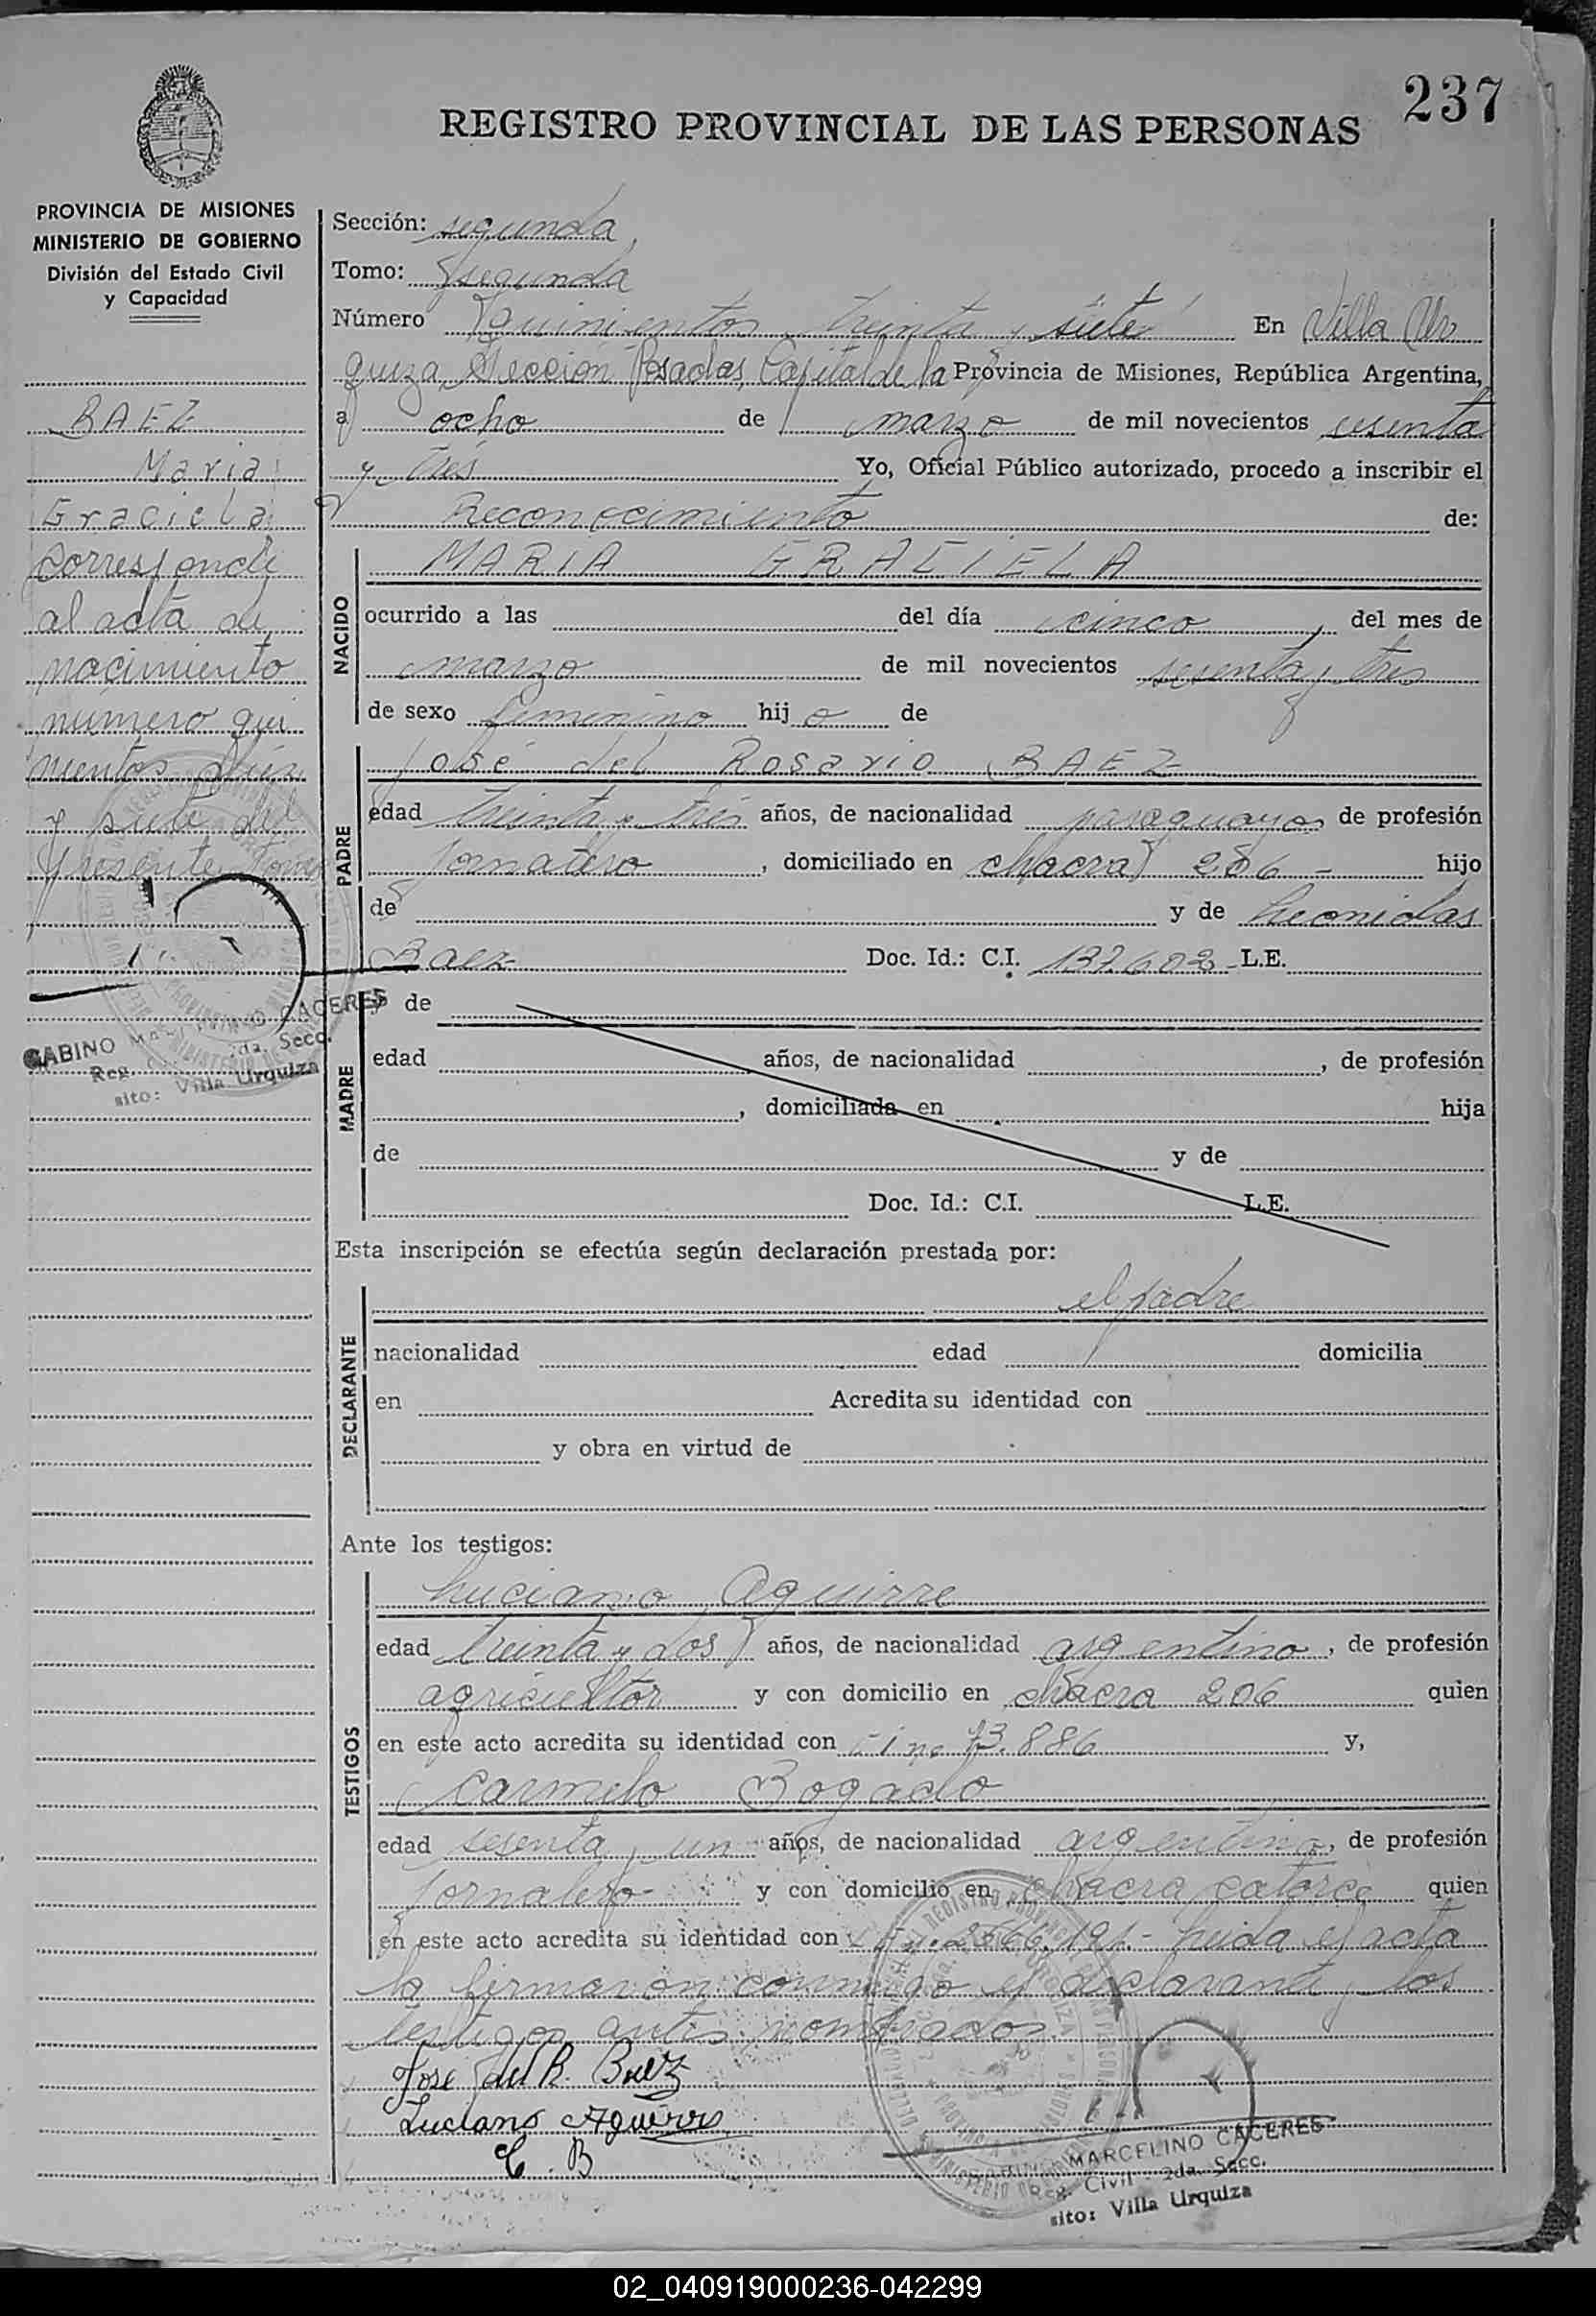 237
REGISTRO PROVINCIAL DE LAS PERSONAS
PROVINCIA DE MISIONES
MINISTERIO DE GOBIERNO
División del Estado Civil
y Capacidad
BAEZ
Maria
Graciela
Corresponde
al acta de
nacimiento
número qui
nientos diez
y siete del
presente tomo
GABINO CACERES
Reg. 2da. Secc.
sito: Villa Urquiza
Sección: segunda
Tomo: segunda
Número quinientos treinta y siete En Villa Ur
quiza, Sección Posadas, Capital de la Provincia de Misiones, República Argentina,
a ocho de marzo de mil novecientos sesenta
y tres Yo, Oficial Público autorizado, procedo a inscribir el
Reconocimiento de:
NACIDO
MARIA GRACIELA
ocurrido a las del día cinco, del mes de
marzo de mil novecientos sesenta y tres
de sexo femenino hij o de
PADRE
José del Rosario BAEZ
edad treinta y tres años, de nacionalidad paraguayo, de profesión
jornalero, domiciliado en chacra 206 - hijo
de y de Leonidas
Baez Doc. Id.: C.I. 137.602 - L.E.
MADRE
y de
edad años, de nacionalidad , de profesión
, domiciliada en hija
de y de
Doc. Id.: C.I. L.E.
Esta inscripción se efectúa según declaración prestada por:
DECLARANTE
el padre
nacionalidad edad domicilia
en Acredita su identidad con
y obra en virtud de
Ante los testigos:
TESTIGOS
Luciano Aguirre
edad treinta y dos años, de nacionalidad argentino, de profesión
agricultor y con domicilio en chacra 206 quien
en este acto acredita su identidad con C i no 73.886 y,
Carmelo Bogado
edad sesenta y un años, de nacionalidad argentino, de profesión
jornalero y con domicilio en chacra catorce quien
en este acto acredita su identidad con 2566.191.- Leida el acta
la firmaron conmigo el declarante y los
testigos antes nombrados.
José del R. Baez
Luciano Aguirre
C. B
MARCELINO CACERES
Reg. Civil - 2da. Secc.
sito: Villa Urquiza
02_040919000236-042299